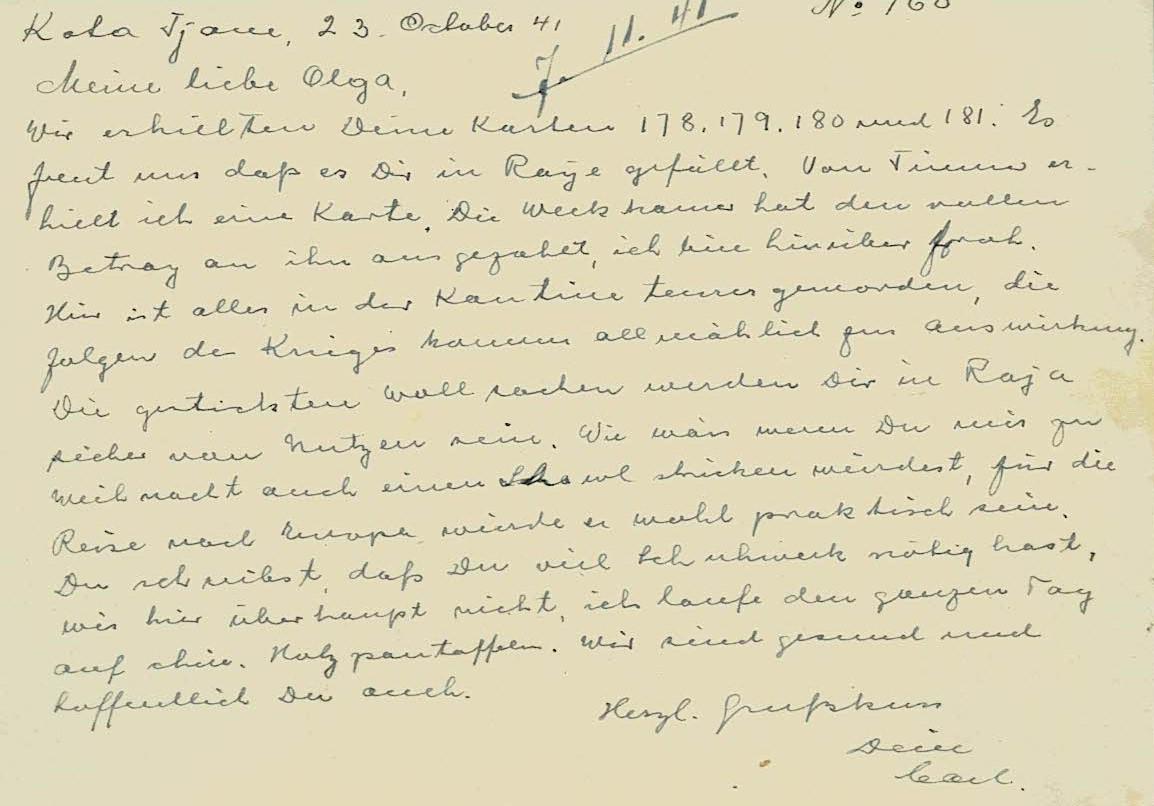 Kota Tjane, 23. October 41
No 160
7. 11. 41
Meine liebe Olga,
Wir erhielten Deine Karten 178. 179. 180 und 181. Es
freut uns daß es Dir in Raye gefällt. Von Timm er-
hielt ich eine Karte. Die Weeskamer hat den vollen
Betrag an ihn ausgezahlt, ich bin hierüber froh.
Hier ist alles in der Kantine teurer geworden, die
Folgen des Krieges kommen allmählich zur Auswirkung.
Die gestrickten Wollsachen werden Dir in Raja
sicher von Nutzen sein. Wie wärs wenn Du mir zu
Weihnacht auch einen Schawl stricken würdest, für die
Reise nach Europa würde er wohl praktisch sein.
Du schreibst, daß Du viel Schuhwerk nötig hast,
wir hier überhaupt nicht, ich laufe den ganzen Tag
auf chin. Holzpantoffeln. Wir sind gesund und
hoffentlich Du auch.
Herzl. Grußkuss
Dein
Carl.